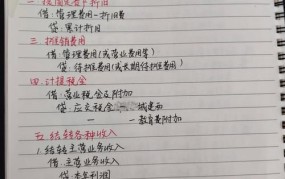 借:管理费用-折旧费
贷:累计折旧
三.摊销费用
借:管理费用(或营业费用等)
贷:待摊费用(或长期待摊费用)
四.计提税金
借:营业税金及附加
贷:应交税金 城建税
— — 教育费附加
五.结转各种收入
1.结转主营业务收入
借:主营业务收入
贷:本年利润